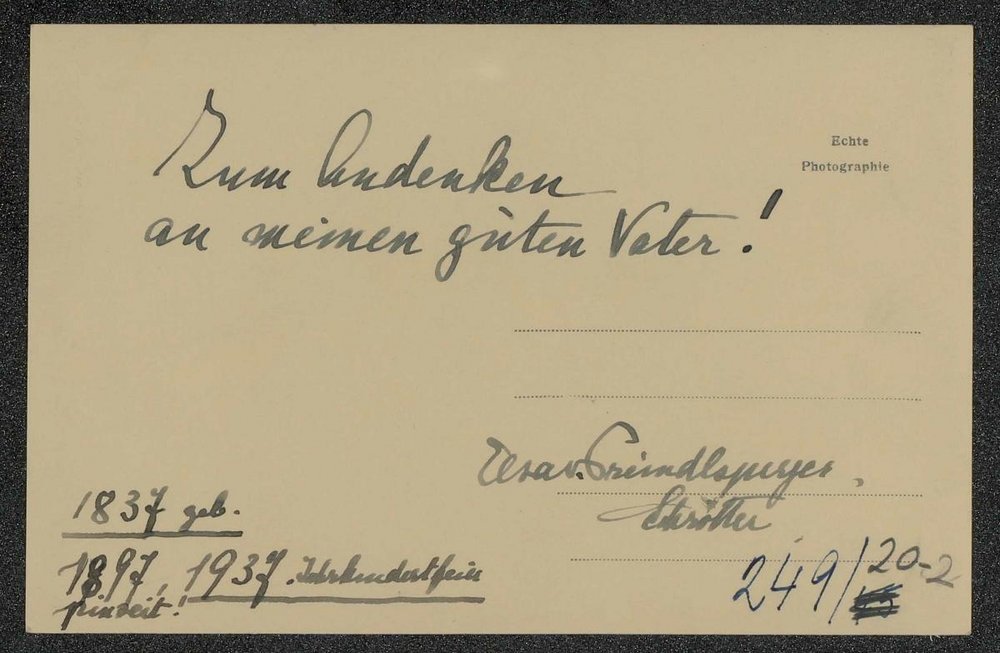 Zum Andenken
an meinen guten Vater!
Echte
Photographie
Elsa v.
Schrötter
1837 geb.
1897, 1937. Jahrhundertfeier
pinxit!
249/20-2